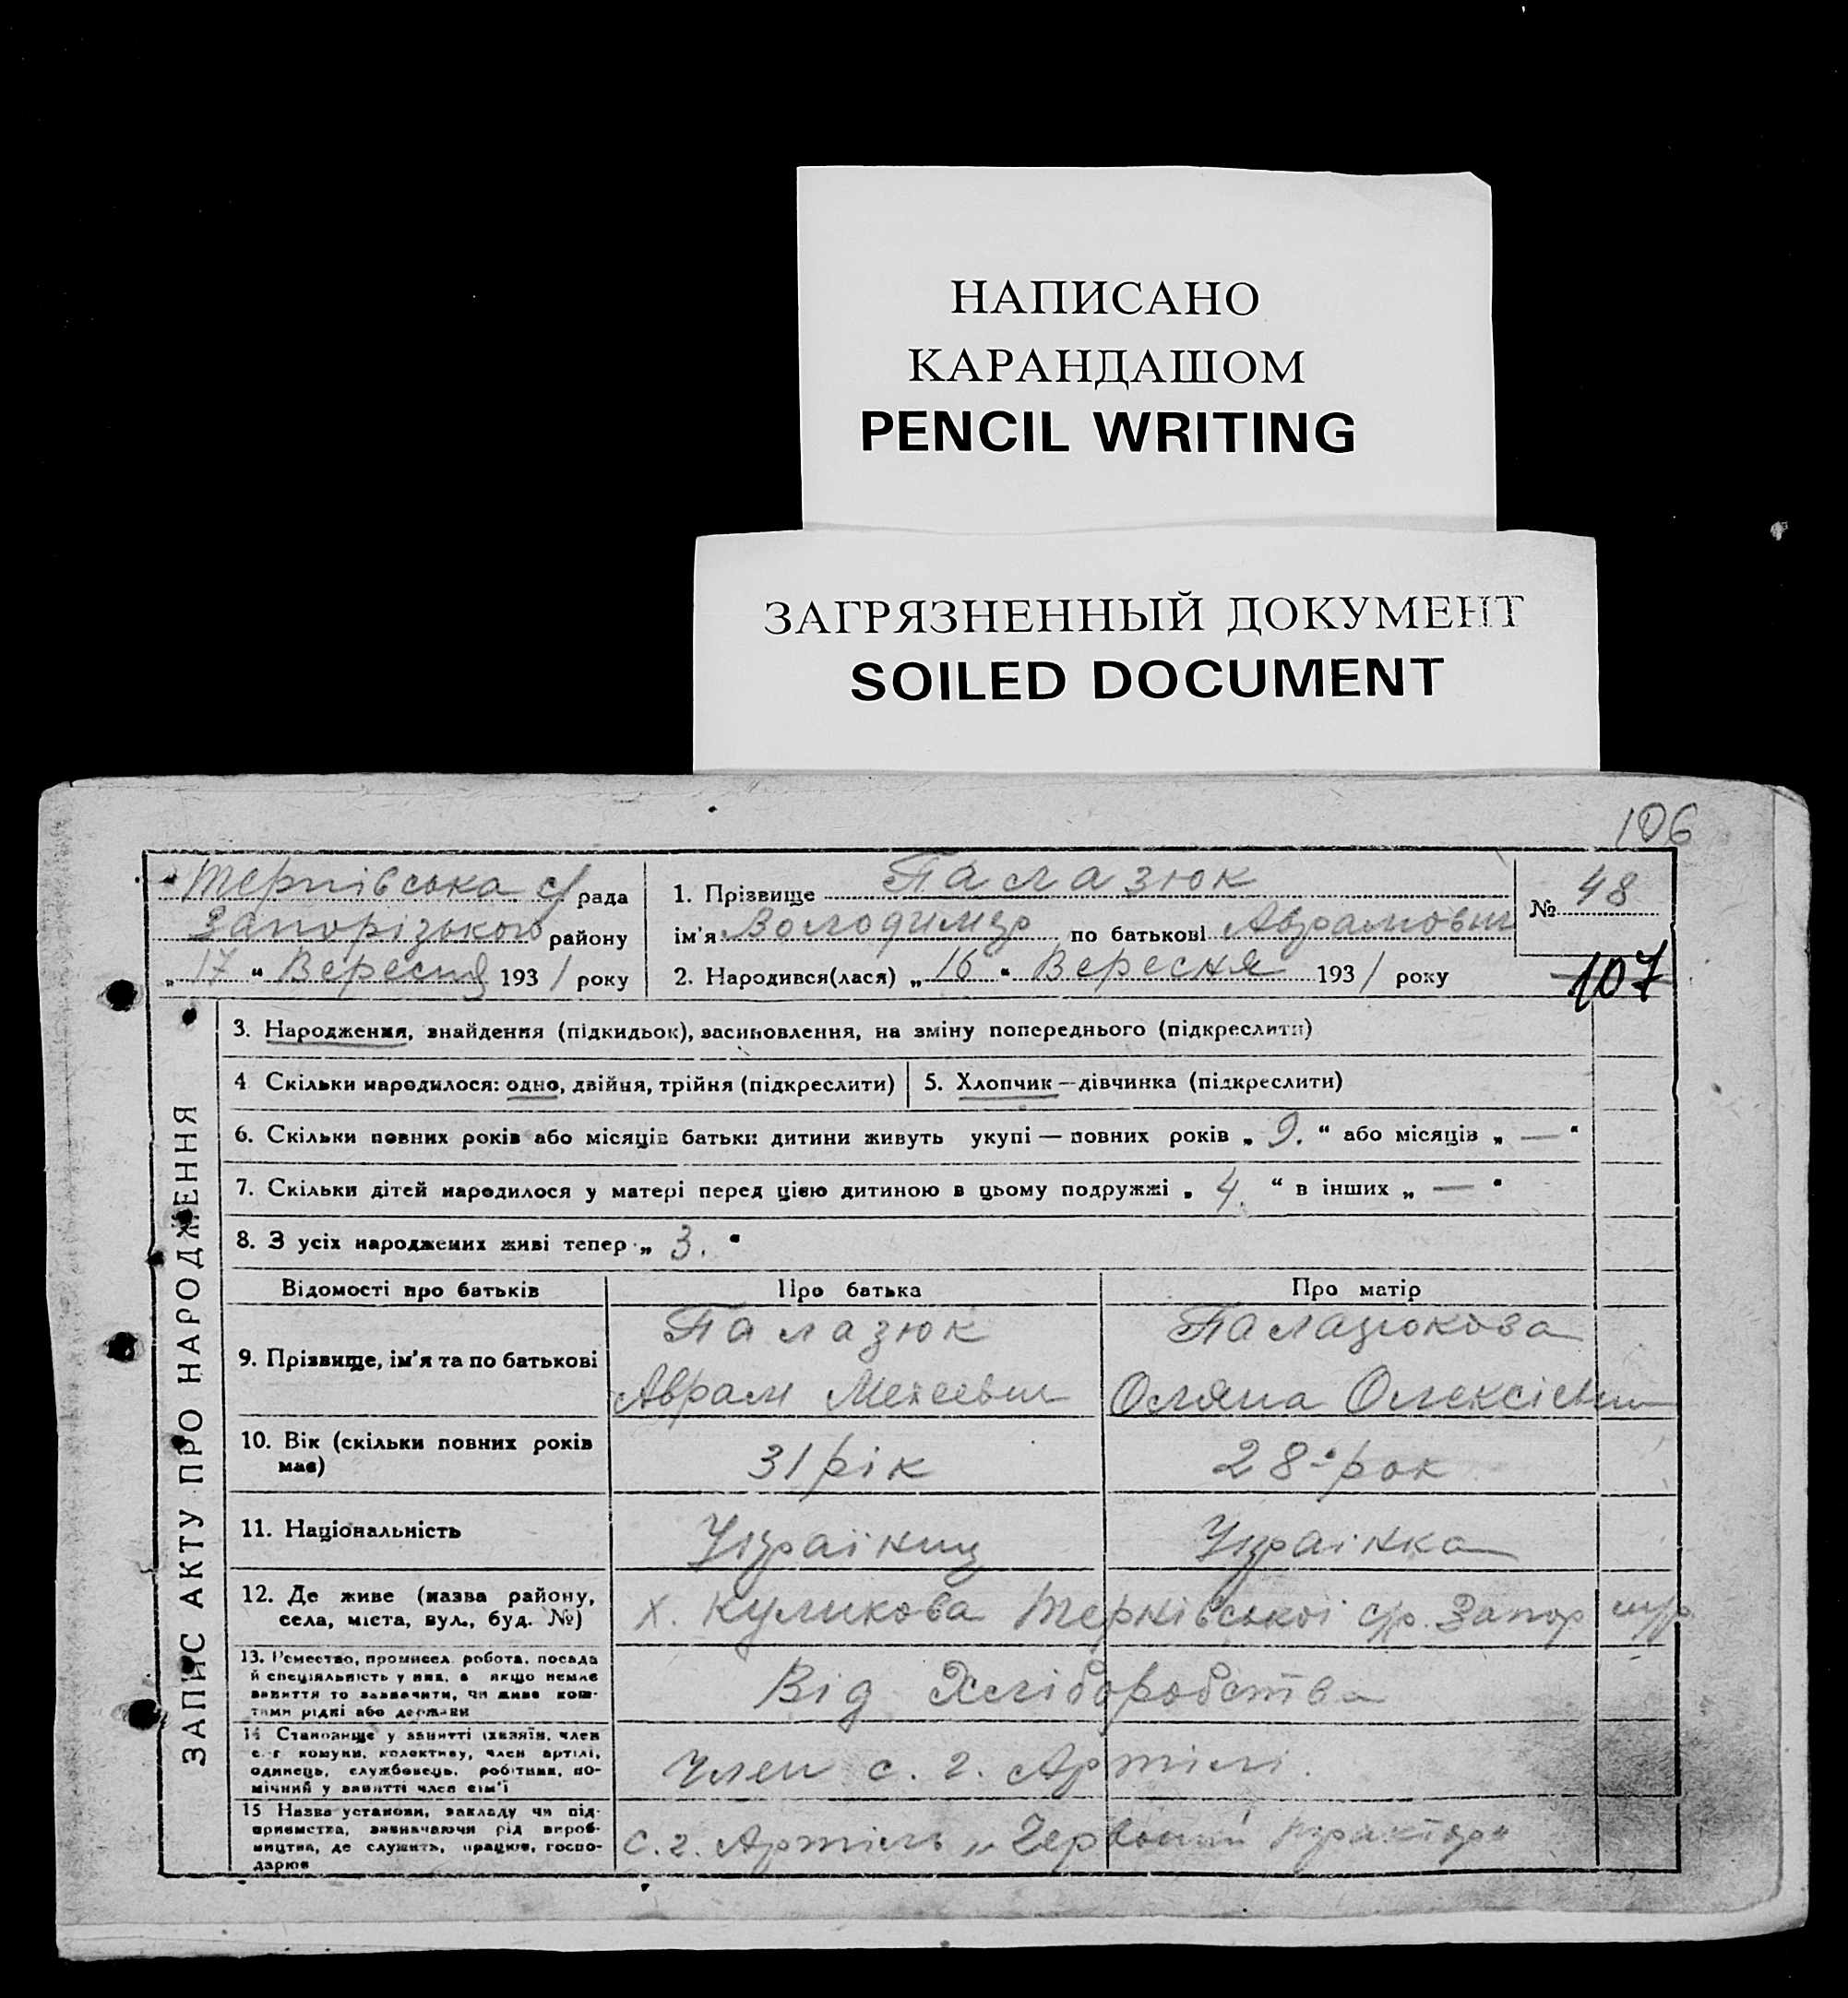 НАПИСАНО
КАРАНДАШОМ
PENCIL WRITING
ЗАГРЯЗНЕННЫЙ ДОКУМЕНТ
SOILED DOCUMENT
106
Тернівська с/рада
Запорізького району
„17“ Вересня 1931 року
1. Прізвище Палазюк
ім'я Володимир по батькові Аврамович
2. Народився(лася) „16“ Вересня 1931 року
№ 48
107
ЗАПИС АКТУ ПРО НАРОДЖЕННЯ
3. Народження, знайдення (підкидьок), васиновлення, на зміну попереднього (підкреслити)
4 Скільки народилося: одно, двійня, трійня (підкреслити)
5. Хлопчик—дівчинка (підкреслити)
6. Скільки повних років або місяців батьки дитини живуть укупі — повних років „ 9. “ або місяців „ — “
7. Скільки дітей народилося у матері перед цією дитиною в цьому подружжі „ 4. “ в інших „ — “
8. З усіх народжених живі тепер „ 3. “
Відомості про батьків
Про батька
Про матір
9. Прізвище, ім'я та по батькові
Палазюк
Аврам
Палазюкова
Оляна
10. Вік (скільки повних років
має)
31 рік
28 рок
11. Національність
Українец
Українка
12. Де живе (назва району,
села, міста, вул., буд. №)
х. Куликова Тернівської с/р. Запор
13. Ремество, промисел, робота, посада
й спеціяльність у них, а якщо немає
вавиття то зазначити, чи живе кош-
тами рідні або держави
Від Хліборобства
14 Становище у завитті (хазяїн, член
с. г комуни, колективу, член артілі,
одинець, службовець, робітник, по-
мічний у вавитті член сім'ї
Член с. г. Артілі.
15 Назва установи, закладу чи під-
приємства, зазначаючи рід вироб-
ництва, де служить, працює, госпо-
дарює
с. г. Артіль „Червоний трактор“